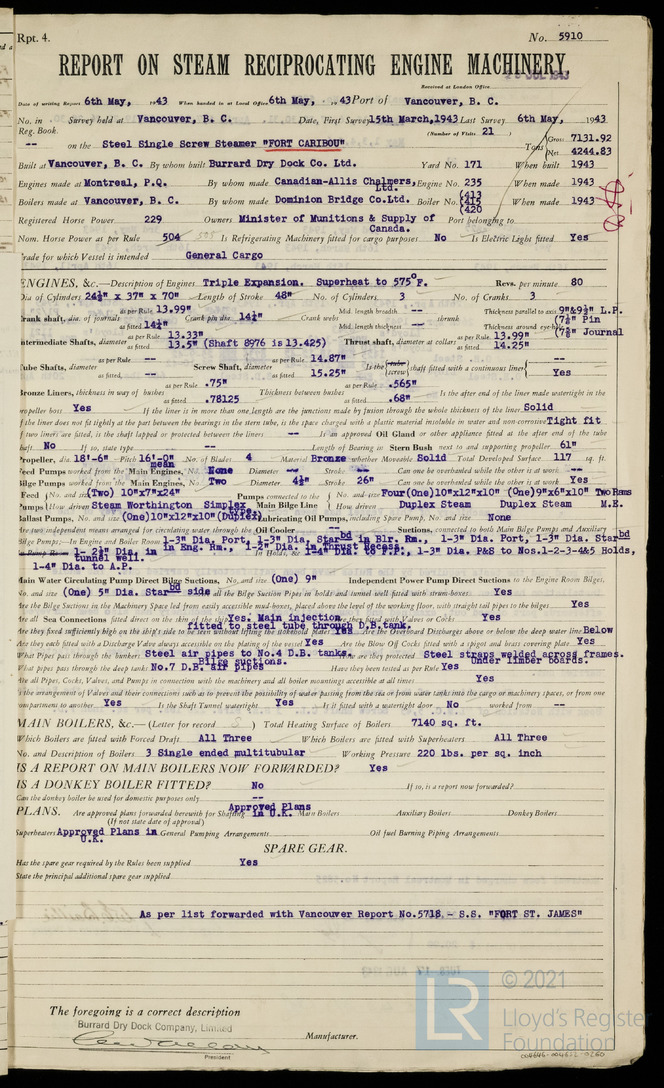 Rpt. 4. No. 5910
REPORT ON STEAM RECIPROCATING ENGINE MACHINERY.
Received at London Office
JUL 1943
Date of writing Report 6th May, 1943 When handed in at Local Office 6th May, 1943 Port of Vancouver, B. C.
No. in Survey held at Vancouver, B. C. Date, First Survey 15th March, 1943 Last Survey 6th May, 1943
Reg. Book. (Number of Visits 21
-- on the Steel Single Screw Steamer "FORT CARIBOU" Tons Gross 7131.92 Net 4244.83
Built at Vancouver, B. C. By whom built Burrard Dry Dock Co. Ltd. Yard No. 171 When built 1943
Engines made at Montreal, P.Q. By whom made Canadian-Allis Chalmers, Ltd. Engine No. 235 When made 1943
Boilers made at Vancouver, B. C. By whom made Dominion Bridge Co.Ltd. Boiler No. (413 (415 (420 When made 1943
Registered Horse Power 229 Owners Minister of Munitions & Supply of Canada. Port belonging to
Nom. Horse Power as per Rule 504 505 Is Refrigerating Machinery fitted for cargo purposes No Is Electric Light fitted Yes
Trade for which Vessel is intended General Cargo
ENGINES, &c.—Description of Engines Triple Expansion. Superheat to 575°F. Revs. per minute 80
Dia of Cylinders 24½" x 37" x 70" Length of Stroke 48" No. of Cylinders 3 No. of Cranks 3
Crank shaft, dia. of journals as per Rule 13.99" as fitted 14¼" Crank pin dia. 14¼" Crank webs Mid. length breadth -- Mid. length thickness -- shrunk Thickness parallel to axis 9"&9½" L.P. Thickness around eye-hole (7½" Pin (7⅞" Journal
Intermediate Shafts, diameter as per Rule 13.33" as fitted 13.5" (Shaft 8976 is 13.425) Thrust shaft, diameter at collars as per Rule 13.99" as fitted 14.25"
Tube Shafts, diameter as per Rule -- as fitted -- Screw Shaft, diameter as per Rule 14.87" as fitted 15.25" Is the { tube screw } shaft fitted with a continuous liner { -- Yes
Bronze Liners, thickness in way of bushes as per Rule .75" as fitted .78125 Thickness between bushes as per Rule .565" as fitted .68" Is the after end of the liner made watertight in the
propeller boss Yes If the liner is in more than one length are the junctions made by fusion through the whole thickness of the liner Solid
If the liner does not fit tightly at the part between the bearings in the stern tube, is the space charged with a plastic material insoluble in water and non-corrosive Tight fit
If two liners are fitted, is the shaft lapped or protected between the liners -- Is an approved Oil Gland or other appliance fitted at the after end of the tube
shaft No If so, state type -- Length of Bearing in Stern Bush next to and supporting propeller 61"
Propeller, dia 18'-6" Pitch 16'-0" mean No. of Blades 4 Material Bronze whether Moveable Solid Total Developed Surface 117 sq. ft.
Feed Pumps worked from the Main Engines, No. None Diameter -- Stroke -- Can one be overhauled while the other is at work --
Bilge Pumps worked from the Main Engines, No. Two Diameter 4½" Stroke 26" Can one be overhauled while the other is at work Yes
Feed Pumps { No. and size (Two) 10"x7"x24" How driven Steam Worthington Simplex Pumps connected to the Main Bilge Line { No. and size Four(One)10"x12"x10" (One)9"x6"x10" Two Rams How driven Duplex Steam Duplex Steam M.E.
Ballast Pumps, No. and size (One)10"x12"x10"(Duplex) Lubricating Oil Pumps, including Spare Pump, No. and size None
Are two independent means arranged for circulating water through the Oil Cooler -- Suctions, connected to both Main Bilge Pumps and Auxiliary
Bilge Pumps;—In Engine and Boiler Room 1-3" Dia, Port, 1-3" Dia, Starbd in Blr. Rm., 1-3" Dia. Port, 1-3" Dia. Starbd
in Eng. Rm., 1-2" Dia. in Thrust Recess.
In Pump Room 1-2½" Dia. in tunnel well. In Holds, &c. 1-4" Dia. to F.P., 1-3" Dia. P&S to Nos.1-2-3-4&5 Holds,
1-4" Dia. to A.P.
Main Water Circulating Pump Direct Bilge Suctions, No. and size (One) 9" Independent Power Pump Direct Suctions to the Engine Room Bilges,
No. and size (One) 5" Dia. Starbd side Are all the Bilge Suction Pipes in holds and tunnel well fitted with strum-boxes Yes
Are the Bilge Suctions in the Machinery Space led from easily accessible mud-boxes, placed above the level of the working floor, with straight tail pipes to the bilges Yes
Are all Sea Connections fitted direct on the skin of the ship Yes. Main injection fitted to steel tube through D.B. tank. Are they fitted with Valves or Cocks Yes
Are they fixed sufficiently high on the ship's side to be seen without lifting the stokehold plates Yes Are the Overboard Discharges above or below the deep water line Below
Are they each fitted with a Discharge Valve always accessible on the plating of the vessel Yes Are the Blow Off Cocks fitted with a spigot and brass covering plate Yes
What Pipes pass through the bunkers Steel air pipes to No.4 D.B. tanks. Bilge suctions. How are they protected Steel straps welded across frames. Under limber boards.
What pipes pass through the deep tanks No.7 D.B. air pipes Have they been tested as per Rule Yes
Are all Pipes, Cocks, Valves, and Pumps in connection with the machinery and all boiler mountings accessible at all times Yes
Is the arrangement of Valves and their connections such as to prevent the possibility of water passing from the sea or from water tanks into the cargo or machinery spaces, or from one
compartment to another Yes Is the Shaft Tunnel watertight Yes Is it fitted with a watertight door No worked from --
MAIN BOILERS, &c.—(Letter for record ) Total Heating Surface of Boilers 7140 sq. ft.
Which Boilers are fitted with Forced Draft All Three Which Boilers are fitted with Superheaters All Three
No. and Description of Boilers 3 Single ended multitubular Working Pressure 220 lbs. per sq. inch
IS A REPORT ON MAIN BOILERS NOW FORWARDED? Yes
IS A DONKEY BOILER FITTED? No If so, is a report now forwarded?
Can the donkey boiler be used for domestic purposes only --
PLANS. Are approved plans forwarded herewith for Shafting Approved Plans in U.K. Main Boilers Auxiliary Boilers Donkey Boilers
(If not state date of approval)
Superheaters Approved Plans in U.K. General Pumping Arrangements Oil fuel Burning Piping Arrangements
SPARE GEAR.
Has the spare gear required by the Rules been supplied Yes
State the principal additional spare gear supplied
As per list forwarded with Vancouver Report No.5718 - S.S. "FORT ST. JAMES"
The foregoing is a correct description
Burrard Dry Dock Company, Limited
Manufacturer.
President
LR © 2021
Lloyd's Register
Foundation